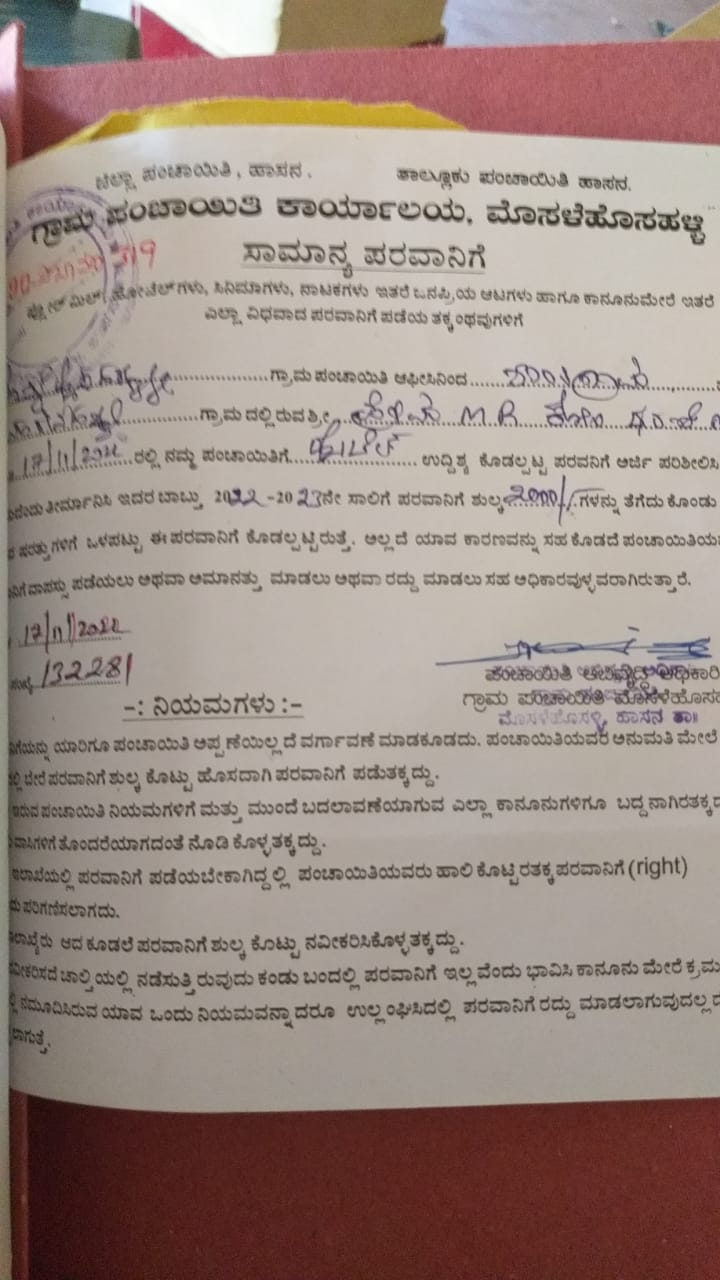 ಜಿಲ್ಲಾ ಪಂಚಾಯಿತಿ, ಹಾಸನ. ತಾಲ್ಲೂಕು ಪಂಚಾಯಿತಿ ಹಾಸನ.
ಗ್ರಾಮ ಪಂಚಾಯಿತಿ ಕಾರ್ಯಾಲಯ, ಮೊಸಳೆಹೊಸಹಳ್ಳಿ
ಸಾಮಾನ್ಯ ಪರವಾನಿಗೆ
ಫ್ಲೋರ್ ಮಿಲ್, ಹೋಟೆಲ್‌ಗಳು, ಸಿನಿಮಾಗಳು, ನಾಟಕಗಳು ಇತರೆ ಜನಪ್ರಿಯ ಆಟಗಳು ಹಾಗೂ ಕಾನೂನುಮೇರೆ ಇತರೆ
ಎಲ್ಲಾ ವಿಧವಾದ ಪರವಾನಿಗೆ ಪಡೆಯ ತಕ್ಕಂಥವುಗಳಿಗೆ
ಗ್ರಾಮ ಪಂಚಾಯಿತಿ ಆಫೀಸಿನಿಂದ
ಗ್ರಾಮದಲ್ಲಿರುವ ಶ್ರೀ M.R ಕೋಂ
17/11/2022 ರಲ್ಲಿ ನಮ್ಮ ಪಂಚಾಯಿತಿಗೆ ಹೋಟೆಲ್ ಉದ್ದಿಶ್ಯ ಕೊಡಲ್ಪಟ್ಟ ಪರವನಿಗೆ ಅರ್ಜಿ ಪರಿಶೀಲಿಸಿ
ತೀರ್ಮಾನಿಸಿ ಇದರ ಬಾಬ್ತು 2022-2023ನೇ ಸಾಲಿಗೆ ಪರವಾನಿಗೆ ಶುಲ್ಕ 2000/- ಗಳನ್ನು ತೆಗೆದುಕೊಂಡು
ಷರತ್ತುಗಳಿಗೆ ಒಳಪಟ್ಟು ಈ ಪರವಾನಿಗೆ ಕೊಡಲ್ಪಟ್ಟಿರುತ್ತೆ. ಅಲ್ಲದೆ ಯಾವ ಕಾರಣವನ್ನು ಸಹ ಕೊಡದೆ ಪಂಚಾಯಿತಿಯ
ವಾಪಸ್ಸು ಪಡೆಯಲು ಅಥವಾ ಅಮಾನತ್ತು ಮಾಡಲು ಅಥವಾ ರದ್ದು ಮಾಡಲು ಸಹ ಅಧಿಕಾರವುಳ್ಳವರಾಗಿರುತ್ತಾರೆ.
17/11/2022
132281
ಪಂಚಾಯಿತಿ ಅಭಿವೃದ್ಧಿ ಅಧಿಕಾರಿ
ಗ್ರಾಮ ಪಂಚಾಯಿತಿ ಮೊಸಳೆಹೊಸ
ಮೊಸಳೆಹೊಸಳ್ಳಿ, ಹಾಸನ ತಾ॥
-: ನಿಯಮಗಳು :-
ಯಾರಿಗೂ ಪಂಚಾಯಿತಿ ಅಪ್ಪಣೆಯಿಲ್ಲದೆ ವರ್ಗಾವಣೆ ಮಾಡಕೂಡದು. ಪಂಚಾಯಿತಿಯವರ ಅನುಮತಿ ಮೇಲೆ
ಬೇರೆ ಪರವಾನಿಗೆ ಶುಲ್ಕ ಕೊಟ್ಟು ಹೊಸದಾಗಿ ಪರವಾನಿಗೆ ಪಡೆತಕ್ಕದ್ದು.
ಇರುವ ಪಂಚಾಯಿತಿ ನಿಯಮಗಳಿಗೆ ಮತ್ತು ಮುಂದೆ ಬದಲಾವಣೆಯಾಗುವ ಎಲ್ಲಾ ಕಾನೂನುಗಳಿಗೂ ಬದ್ದನಾಗಿರತಕ್ಕ
ತೊಂದರೆಯಾಗದಂತೆ ನೋಡಿ ಕೊಳ್ಳತಕ್ಕದ್ದು.
ಇಲಾಖೆಯಲ್ಲಿ ಪರವಾನಿಗೆ ಪಡೆಯಬೇಕಾಗಿದ್ದಲ್ಲಿ ಪಂಚಾಯಿತಿಯವರು ಹಾಲಿ ಕೊಟ್ಟಿರತಕ್ಕ ಪರವಾನಿಗೆ (right)
ಪರಿಗಣಿಸಲಾಗದು.
ಆದ ಕೂಡಲೆ ಪರವಾನಿಗೆ ಶುಲ್ಕ ಕೊಟ್ಟು ನವೀಕರಿಸಿಕೊಳ್ಳತಕ್ಕದ್ದು.
ಚಾಲ್ತಿಯಲ್ಲಿ ನಡೆಸುತ್ತಿರುವುದು ಕಂಡು ಬಂದಲ್ಲಿ ಪರವಾನಿಗೆ ಇಲ್ಲವೆಂದು ಭಾವಿಸಿ ಕಾನೂನು ಮೇರೆ ಕ್ರಮ
ನಮೂದಿಸಿರುವ ಯಾವ ಒಂದು ನಿಯಮವನ್ನಾದರೂ ಉಲ್ಲಂಘಿಸಿದಲ್ಲಿ ಪರವಾನಿಗೆ ರದ್ದು ಮಾಡಲಾಗುವುದಲ್ಲದ